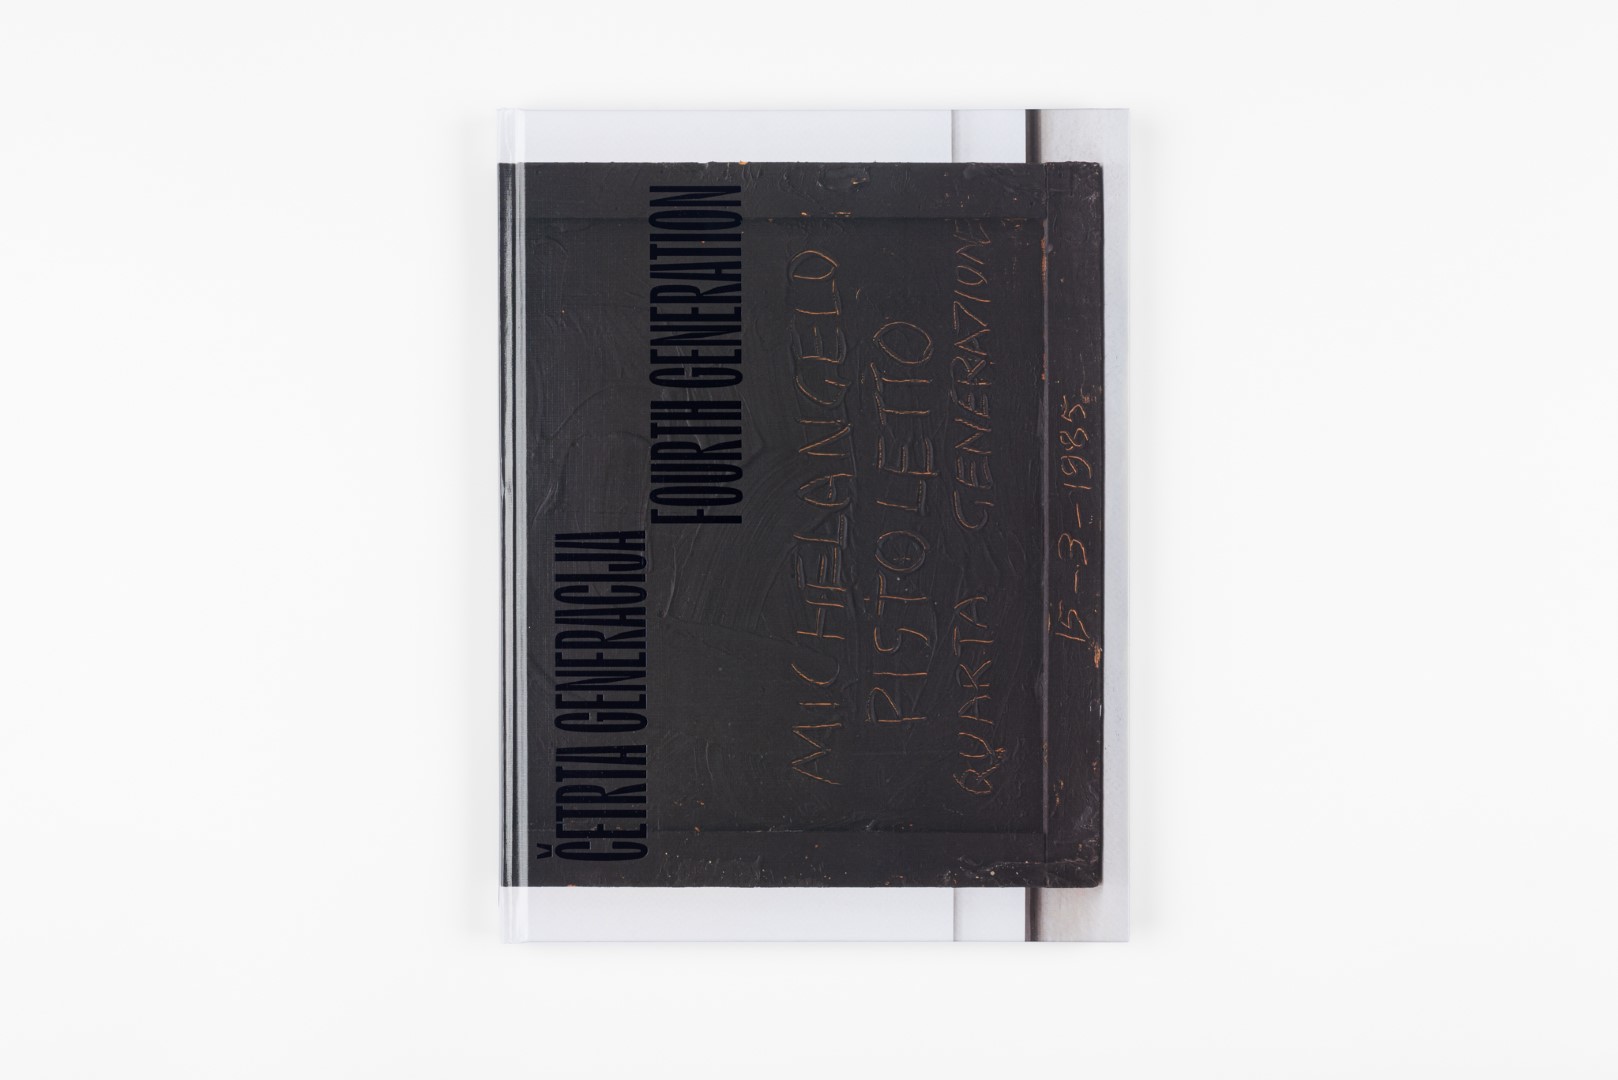 ČETRTA GENERACIJA
FOURTH GENERATION
MICHELANGELO
PISTOLETTO
QUARTA GENERAZIONE
15-3-1985